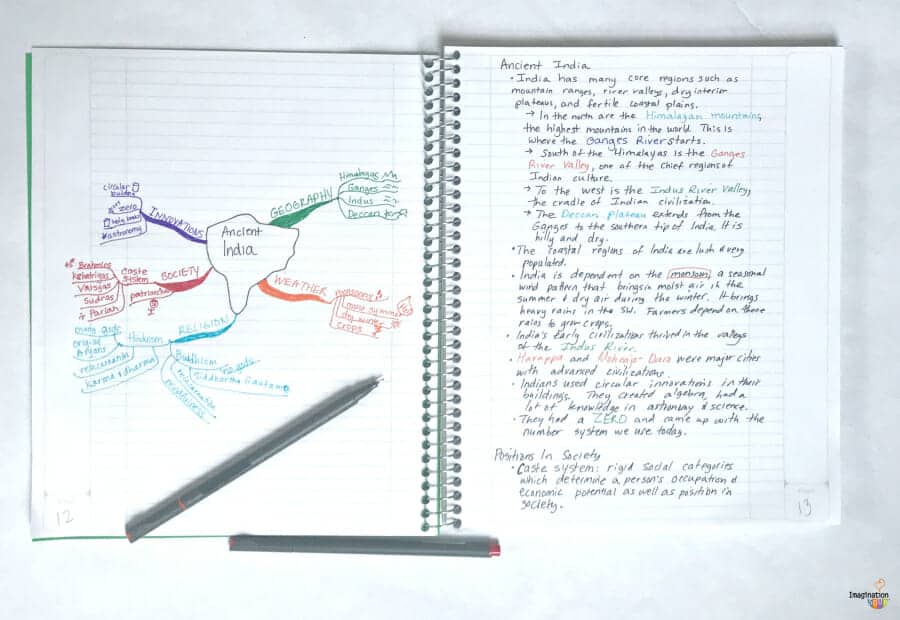 Ancient
India
GEOGRAPHY
Himalayas
Ganges
Indus
Deccan
INNOVATIONS
circular
building
zero
astronomy
SOCIETY
caste
system
Brahmins
Kshatriyas
Vaisyas
Sudras
Pariah
WEATHER
monsoons
dry winter
crops
RELIGION
Hinduism
many gods
origins
Aryans
reincarnation
karma + dharma
Buddhism
Siddhartha Gautama
reincarnation
mindfulness
12
Ancient India
• India has many core regions such as
mountain ranges, river valleys, dry interior
plateaus, and fertile coastal plains.
→ In the north are the Himalayan mountains,
the highest mountains in the world. This is
where the Ganges River starts.
→ South of the Himalayas is the Ganges
River Valley, one of the chief regions of
Indian culture.
→ To the west is the Indus River Valley,
the cradle of Indian civilization.
→ The Deccan Plateau extends from the
Ganges to the southern tip of India. It is
hilly and dry.
• The coastal regions of India are lush & very
populated.
• India is dependent on the monsoon, a seasonal
wind pattern that brings in moist air in the
summer & dry air during the winter. It brings
heavy rains in the SW. Farmers depend on these
rains to grow crops.
• India's early civilizations thrived in the valleys
of the Indus River.
• Harappa and Mohenjo-Daro were major cities
with advanced civilizations.
• Indians used circular innovations in their
buildings. They created algebra, had a
lot of knowledge in astronomy & science.
• They had a ZERO and came up with the
number system we use today.
Positions In Society
• Caste system: rigid social categories
which determine a person's occupation &
economic potential as well as position in
society.
13
Imagination
SOUP